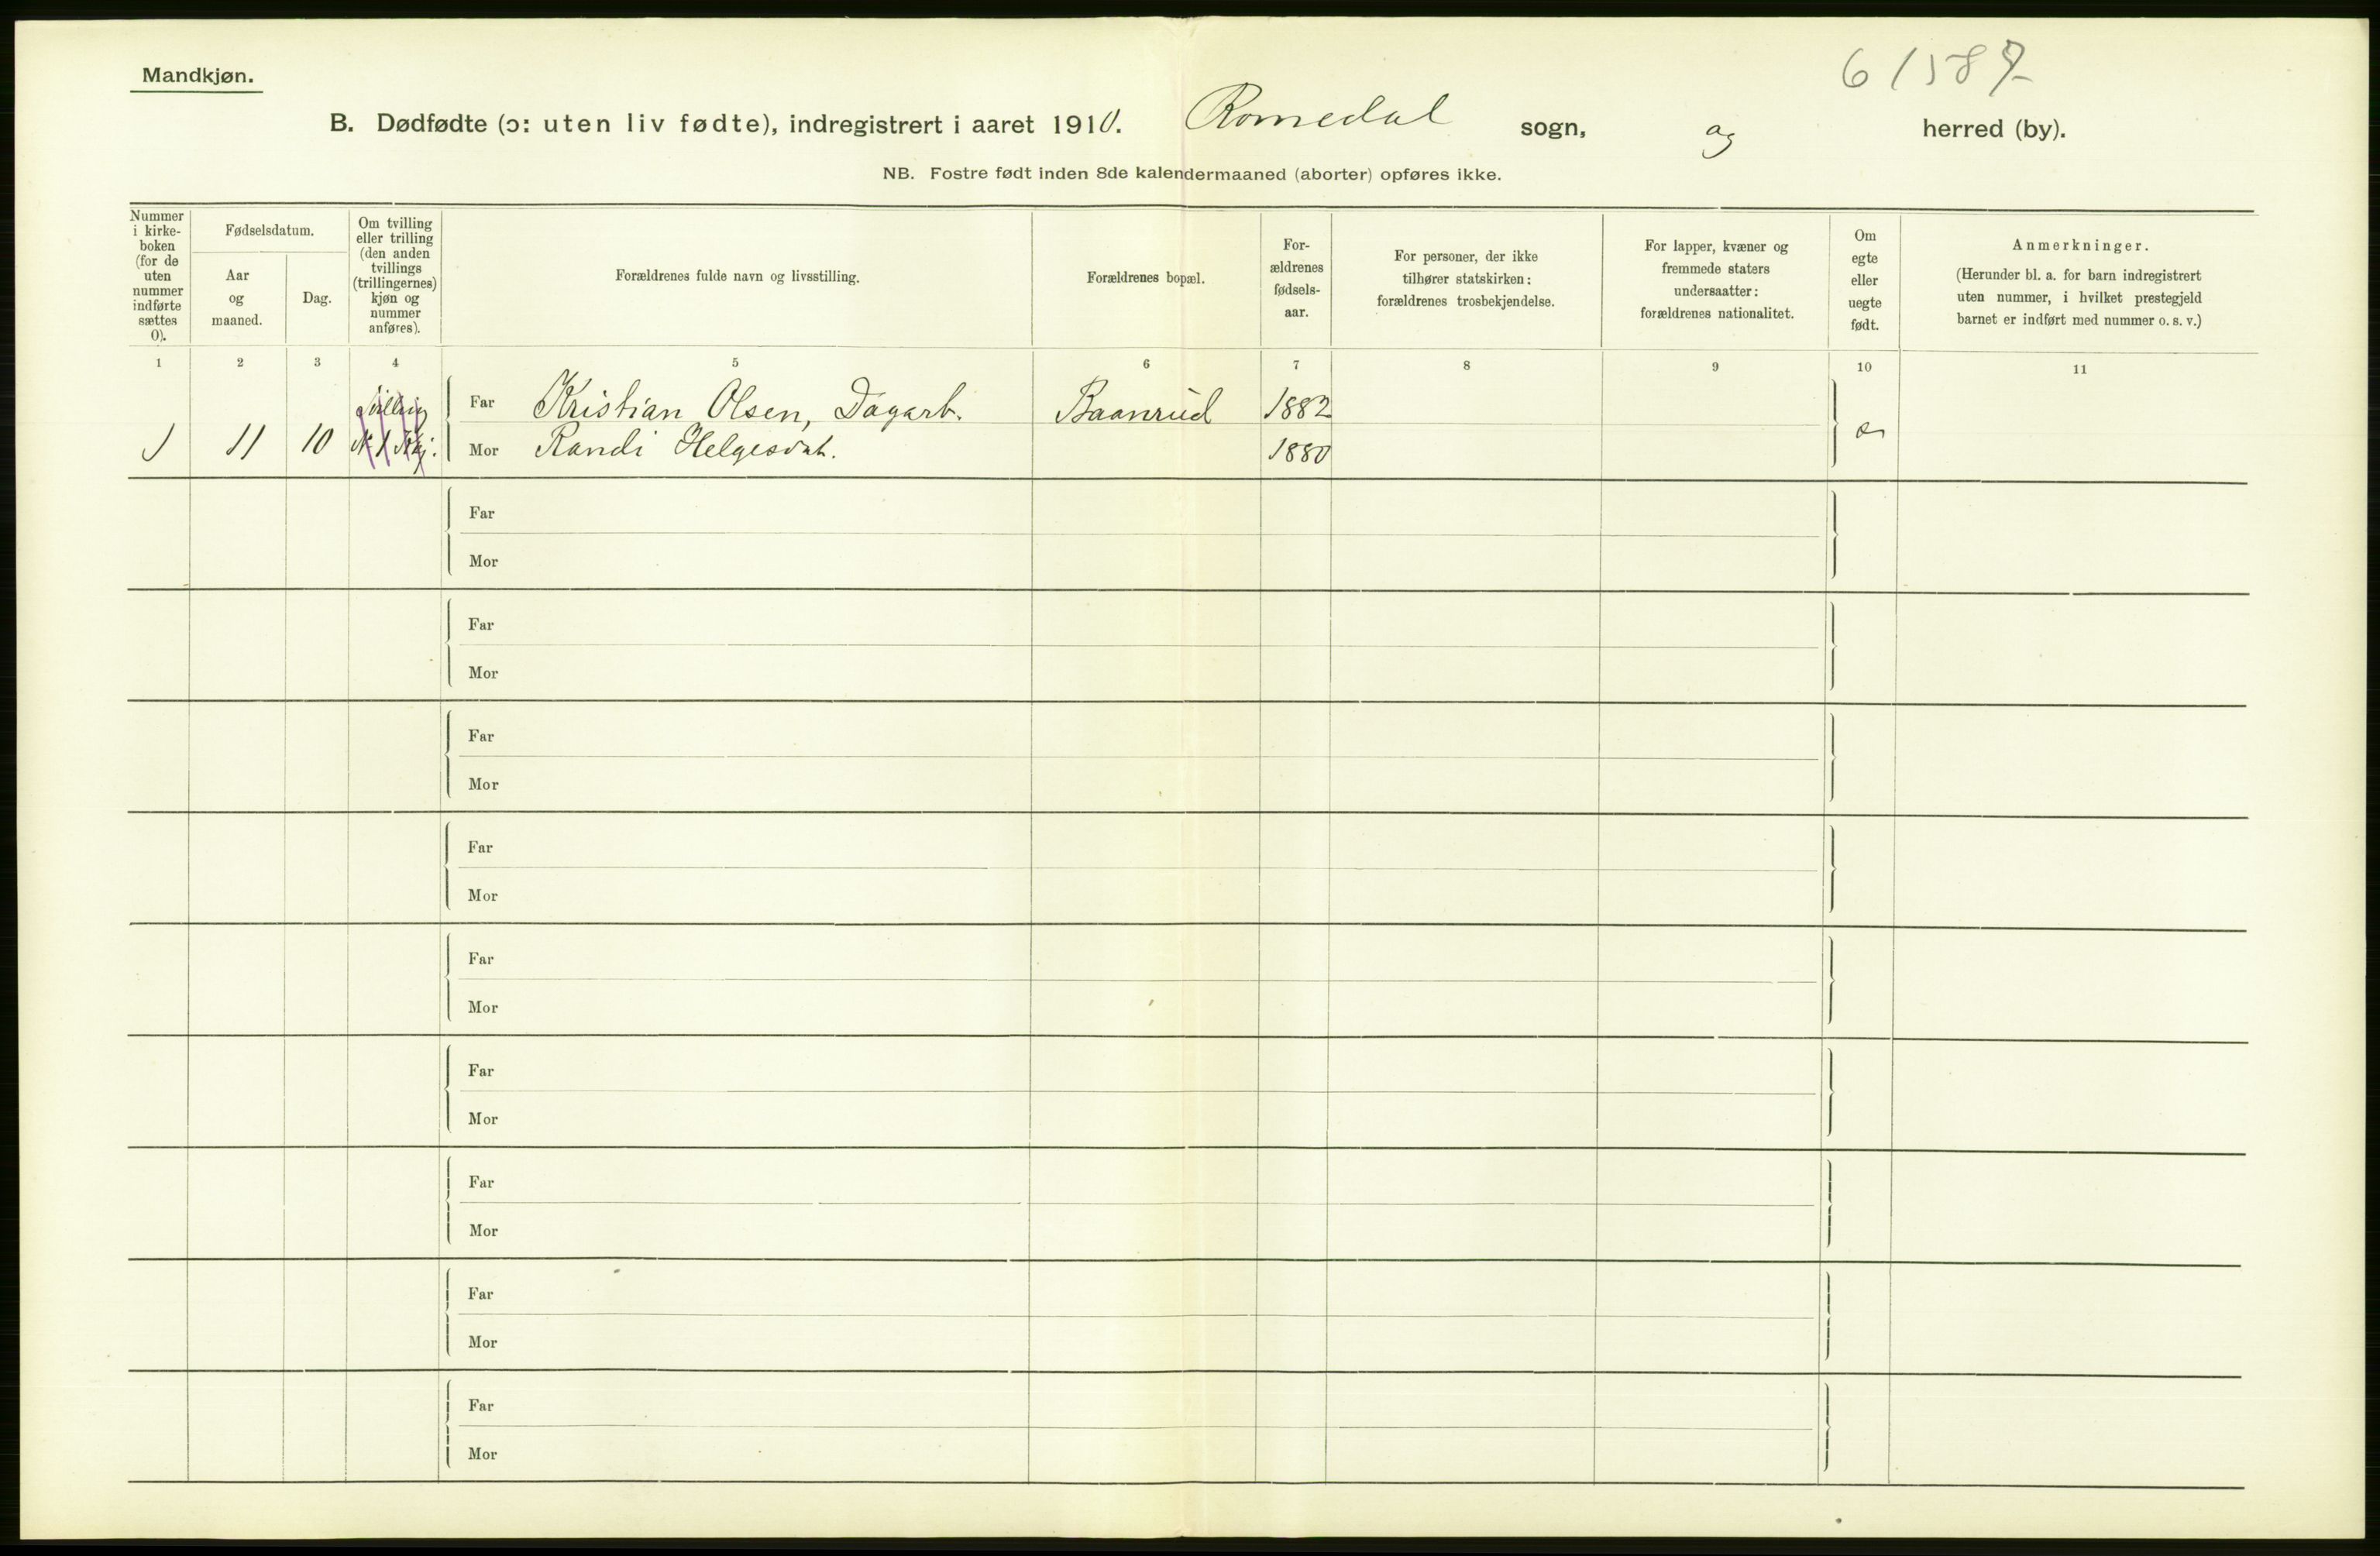 Mandkjøn.
6/587
B. Dødfødte (ɔ: uten liv fødte), indregistrert i aaret 1910. Romedal sogn, og herred (by).
NB. Fostre født inden 8de kalendermaaned (aborter) opføres ikke.
Nummer
i kirke-
boken
(for de
uten
nummer
indførte
sættes
0).
Fødselsdatum.
Aar
og
maaned.
Dag.
Om tvilling
eller trilling
(den anden
tvillings
(trillingernes)
kjøn og
nummer
anføres).
Forældrenes fulde navn og livsstilling.
Forældrenes bopæl.
For-
ældrenes
fødsels-
aar.
For personer, der ikke
tilhører statskirken:
forældrenes trosbekjendelse.
For lapper, kvæner og
fremmede staters
undersaatter:
forældrenes nationalitet.
Om
egte
eller
uegte
født.
Anmerkninger.
(Herunder bl. a. for barn indregistrert
uten nummer, i hvilket prestegjeld
barnet er indført med nummer o. s. v.)
1 2 3 4 5 6 7 8 9 10 11
Tvilling Far Kristian Olsen, Dagarb. Baanrud 1882
1 11 10 Mor Randi Helgesdat. 1880 e
Far
Mor
Far
Mor
Far
Mor
Far
Mor
Far
Mor
Far
Mor
Far
Mor
Far
Mor
Far
Mor